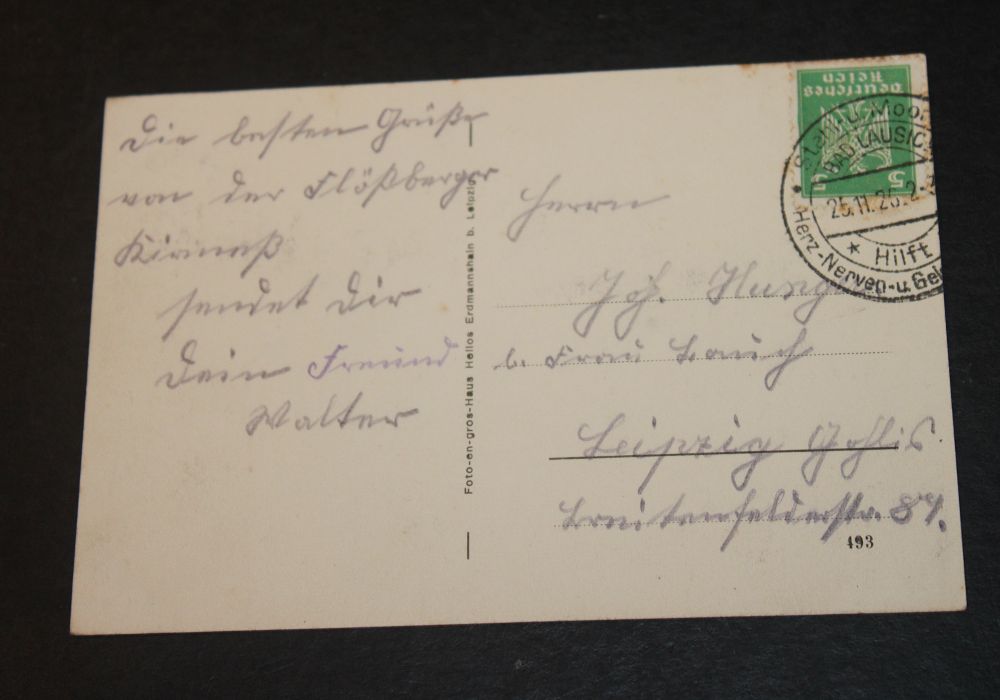 Die besten Grüße
von der Flößberger
Kirmeß
sendet Dir
Dein Freund
Walter
Foto-en-gros-Haus Helios Erdmannshain b. Leipzig
Deutsches
Reich
5 5
Stahl- u. Moor
BAD LAUSICK
25.11.26. 2-
* Hilft
Herz-Nerven-u.
Herrn
Joh.
b. Frau Lauch
Leipzig Gohlis
Breitenfelderstr. 84.
493